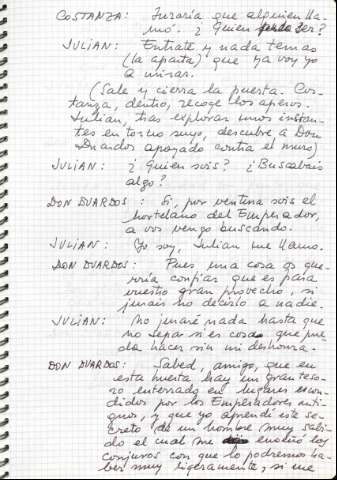 COSTANZA: Juraría que alguien lla-
mó. ¿Quien podía ser?
JULIAN: Entrate y nada temas
(la aparta) que ya voy yo
a mirar.
(Sale y cierra la puerta. Cos-
tanza, dentro, recoge los aperos.
Julian, tras explorar unos instan-
tes en torno suyo, descubre a Don
Duardos apoyado contra el muro)
JULIAN: ¿Quien sois? ¿Buscabais
algo?
DON DUARDOS: Si, por ventura sois el
hortelano del Emperador,
a vos vengo buscando.
JULIAN: Yo soy, Julian me llamo.
DON DUARDOS: Pues una cosa os que-
rría confiar que es para
vuestro gran provecho, si
jurais no decirlo a nadie.
JULIAN: No juraré nada hasta que
no sepa si es cosa que pue-
da hacer sin mi deshonra.
DON DUARDOS: Sabed, amigo, que en
esta huerta hay un gran teso-
ro enterrado en lugares escon-
didos por los Emperadores anti-
guos, y que yo aprendí este se-
creto de un hombre muy sabi-
do el cual me enseñó los
conjuros con que lo podremos ha-
ber muy ligeramente, si me